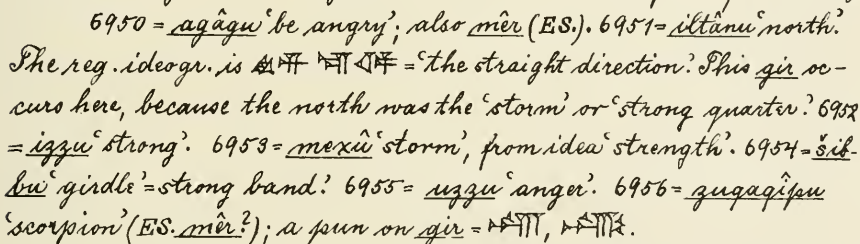 6950 = agâgu ‘be angry’; also mêr (ES.). 6951 = iltânu ‘north’.
The reg. ideogr. is = ‘the straight direction’. This gir oc-
curs here, because the north was the ‘storm’ or ‘strong quarter’. 6952
= izzu ‘strong’. 6953 = mexû ‘storm’, from idea ‘strength’. 6954 = šib-
bu ‘girdle’ = strong band? 6955 = uzzu ‘anger’. 6956 = zugagîpu
‘scorpion’ (ES. mêr?); a pun on gir =